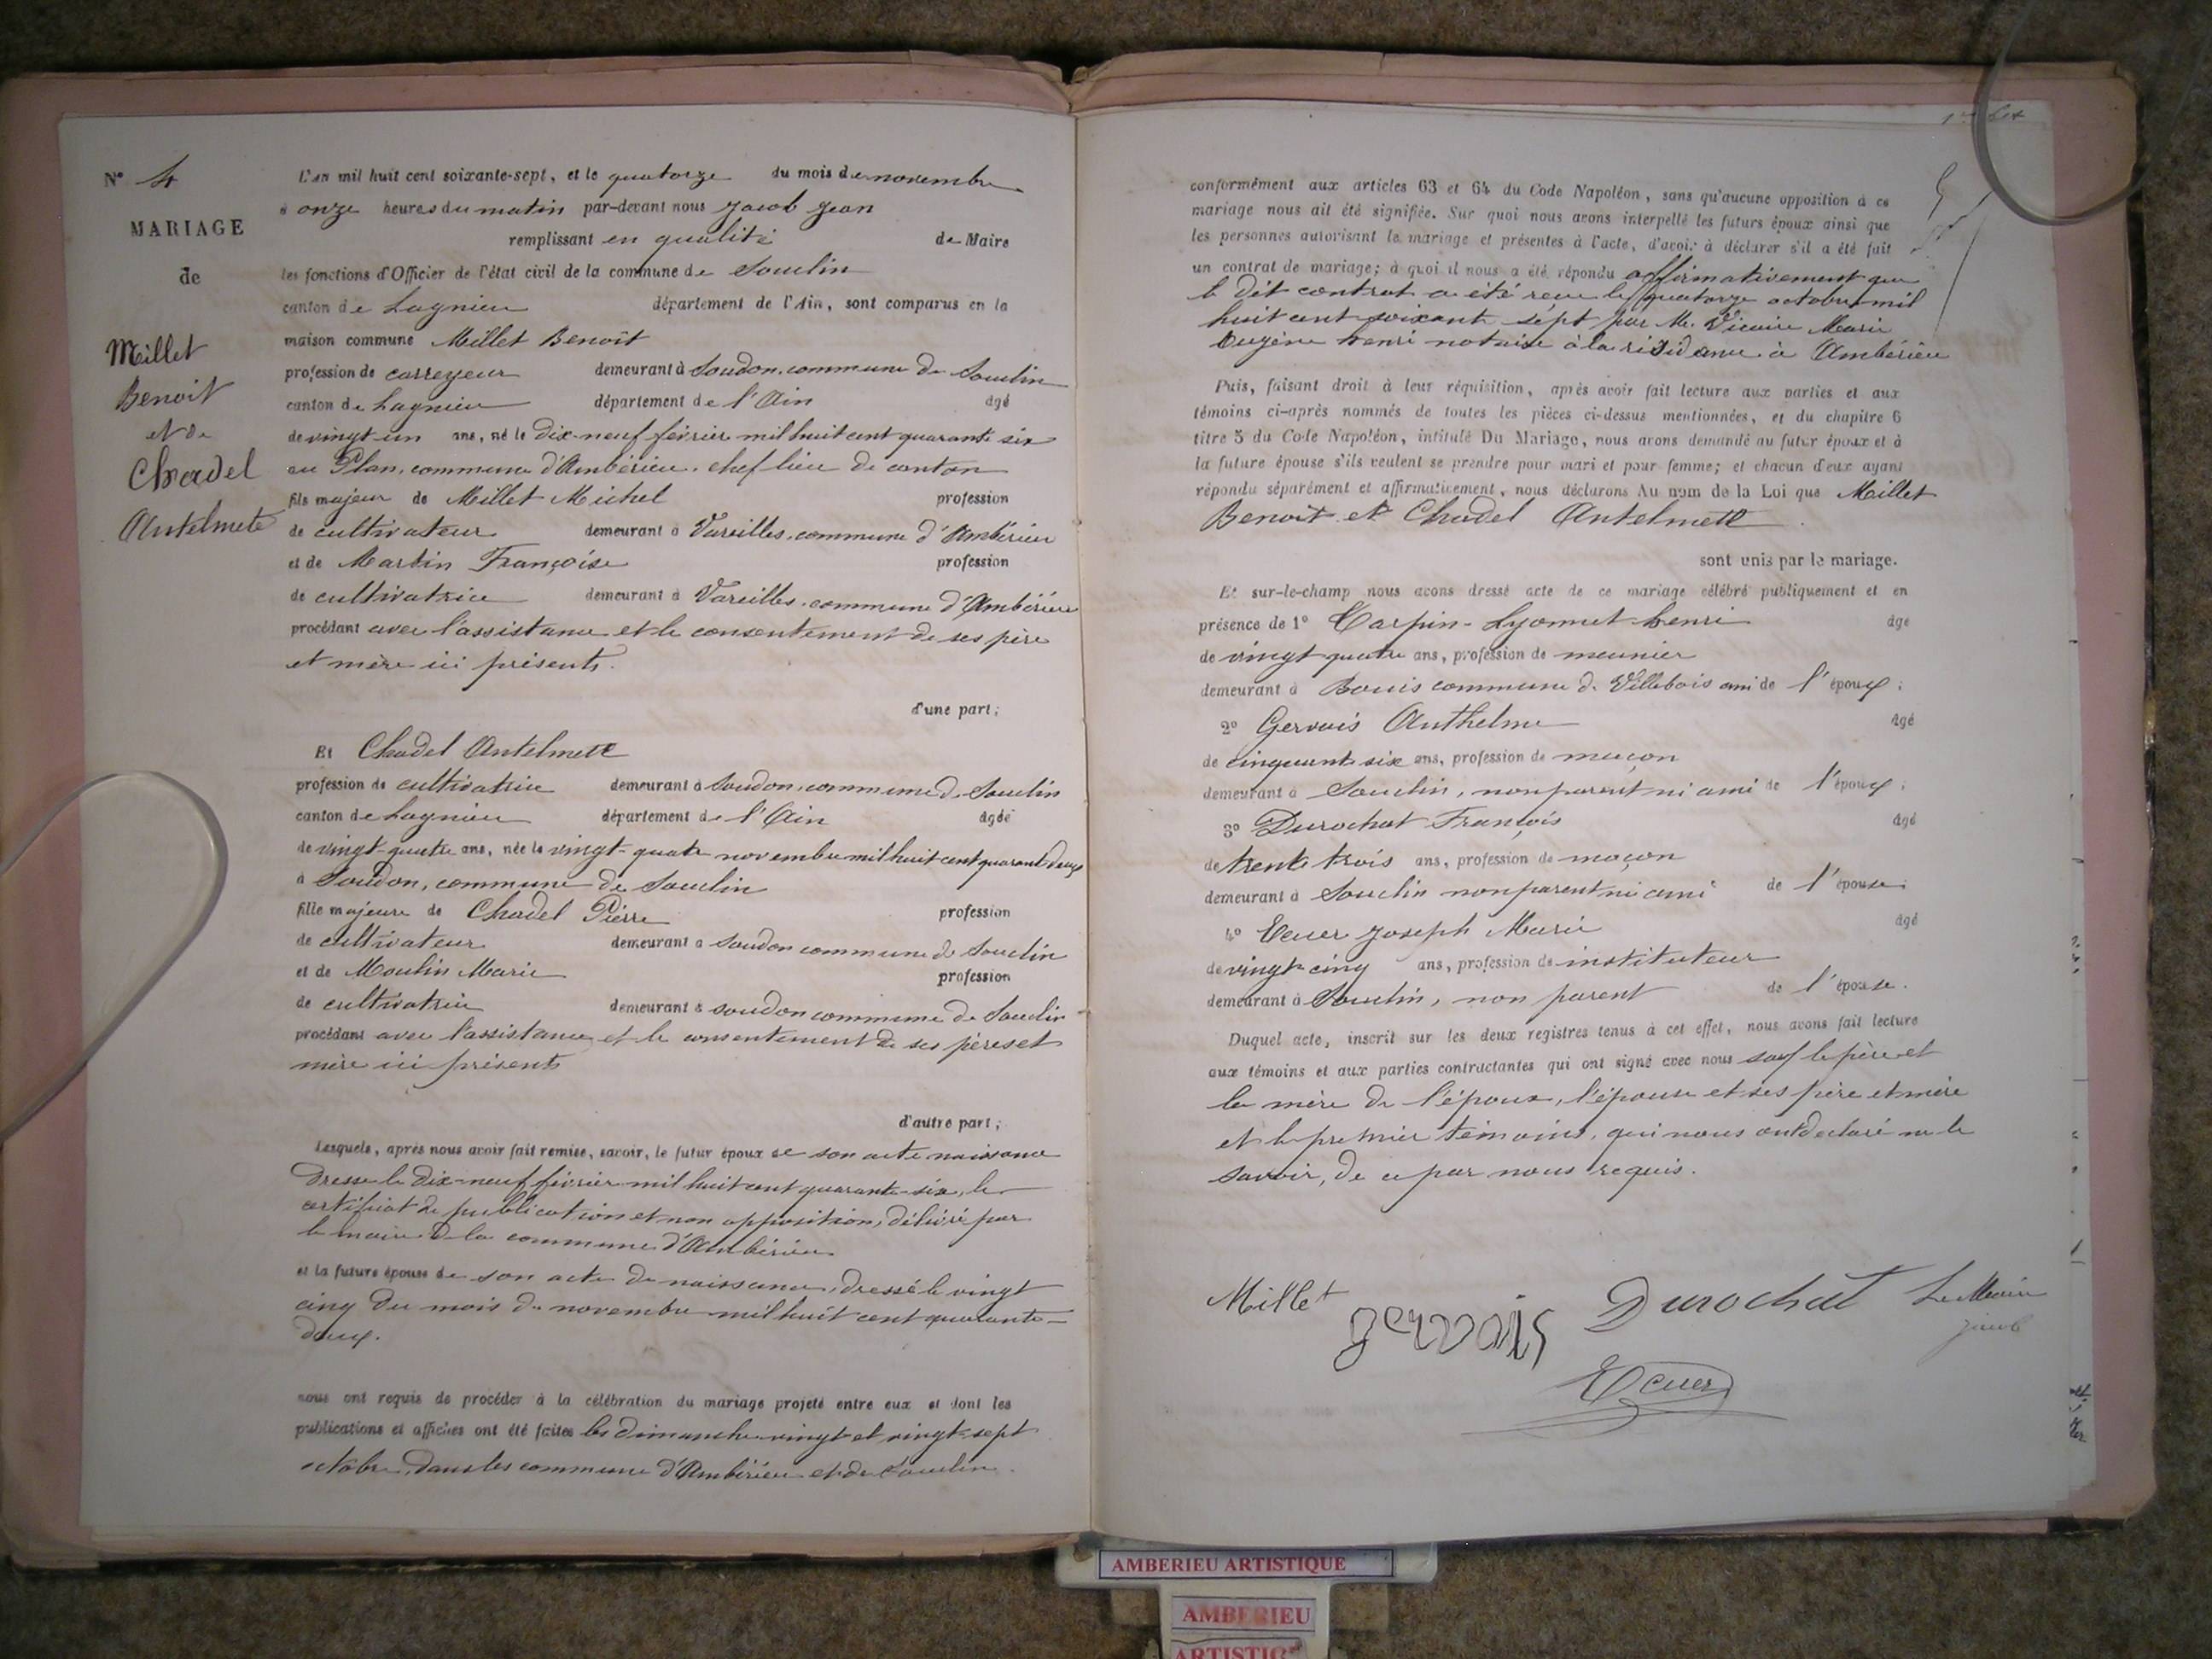 N° 4
MARIAGE
de
Millet
Benoit
et de
Chadel
Antelmete
L'an mil huit cent soixante-sept, et le quatorze du mois de novembre
à onze heures du matin par-devant nous Jacob Jean
remplissant en qualité de Maire
les fonctions d'Officier de l'état civil de la commune de Souclin
canton de Lagnieu département de l'Ain, sont comparus en la
maison commune Millet Benoît
profession de carreyeur demeurant à Soudon, commune de Souclin
canton de Lagnieu département de l'Ain âgé
de vingt-un ans, né le dix-neuf février mil huit cent quarante six
au Plan, commune d'Ambérieu, chef lieu de canton
fils majeur de Millet Michel profession
de cultivateur demeurant à Vareilles, commune d'Ambérieu
et de Martin Françoise profession
de cultivatrice demeurant à Vareilles, commune d'Ambérieu
procédant avec l'assistance et le consentement de ses père
et mère ici présents.
d'une part;
Et Chadel Antelmette
profession de cultivatrice demeurant à Soudon, commune de Souclin
canton de Lagnieu département de l'Ain âgée
de vingt-quatre ans, née le vingt-quatre novembre mil huit cent quarante deux
à Soudon, commune de Souclin
fille majeure de Chadel Pierre profession
de cultivateur demeurant à Soudon commune de Souclin
et de Moulin Marie profession
de cultivatrice demeurant à Soudon commune de Souclin
procédant avec l'assistance et le consentement de ses père et
mère ici présents
d'autre part;
Lesquels, après nous avoir fait remise, savoir, le futur époux de son acte naissance
dressé le dix-neuf février mil huit cent quarante-six, le
certificat de publication et non opposition, délivré par
le maire de la commune d'Ambérieu
et la future épouse de son acte de naissance, dressé le vingt
cinq du mois de novembre mil huit cent quarante-
deux.
nous ont requis de procéder à la célébration du mariage projeté entre eux et dont les
publications et affiches ont été faites les dimanche vingt et vingt-sept
octobre, dans les commune d'Ambérieu et de Souclin.
conformément aux articles 63 et 64 du Code Napoléon, sans qu'aucune opposition à ce
mariage nous ait été signifiée. Sur quoi nous avons interpellé les futurs époux ainsi que
les personnes autorisant le mariage et présentes à l'acte, d'avoir à déclarer s'il a été fait
un contrat de mariage; à quoi il nous a été répondu affirmativement que
le dit contrat a été reçu le quatorze octobre mil
huit cent soixante sept par Me. Vicaire Marie
Eugène henri notaire à la résidence à Ambérieu
Puis, faisant droit à leur réquisition, après avoir fait lecture aux parties et aux
témoins ci-après nommés de toutes les pièces ci-dessus mentionnées, et du chapitre 6
titre 5 du Code Napoléon, intitulé Du Mariage, nous avons demandé au futur époux et à
la future épouse s'ils veulent se prendre pour mari et pour femme; et chacun d'eux ayant
répondu séparément et affirmativement, nous déclarons Au nom de la Loi que Millet
Benoît et Chadel Antelmette
sont unis par le mariage.
Et sur-le-champ nous avons dressé acte de ce mariage célébré publiquement et en
présence de 1° Carpin-Lyonnet henri âgé
de vingt quatre ans, profession de meunier
demeurant à Bouis commune de Villebois ami de l'époux;
2° Gervais Anthelme âgé
de cinquante six ans, profession de maçon
demeurant à Souclin, non parent ni ami de l'époux;
3° Durochat François âgé
de trente trois ans, profession de maçon
demeurant à Souclin non parent ni ami de l'épouse;
4° Joseph Marie âgé
de vingt cinq ans, profession de instituteur
demeurant à Souclin, non parent de l'épouse.
Duquel acte, inscrit sur les deux registres tenus à cet effet, nous avons fait lecture
aux témoins et aux parties contractantes qui ont signé avec nous sauf le père et
la mère de l'époux, l'épouse et ses père et mère
et le premier témoins, qui nous ont déclaré ne le
savoir, de ce par nous requis.
Millet
gervais
Durochat
Le Maire
Jacob
AMBERIEU ARTISTIQUE
AMBERIEU